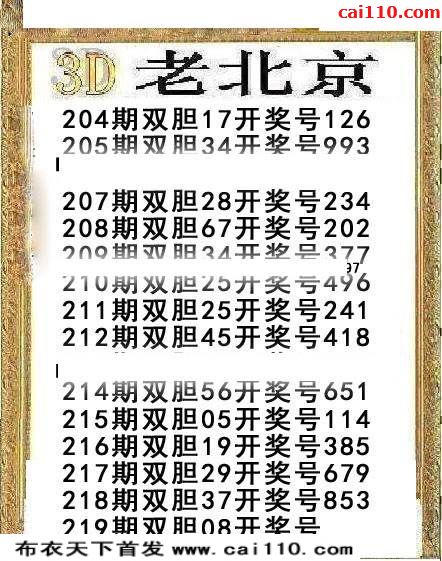 cai110.com
3D 老北京
204期双胆17开奖号126
205期双胆34开奖号993
207期双胆28开奖号234
208期双胆67开奖号202
209期双胆34开奖号377
97
210期双胆25开奖号496
211期双胆25开奖号241
212期双胆45开奖号418
214期双胆56开奖号651
215期双胆05开奖号114
216期双胆19开奖号385
217期双胆29开奖号679
218期双胆37开奖号853
219期双胆08开奖号
布衣天下首发 www.cai110.com